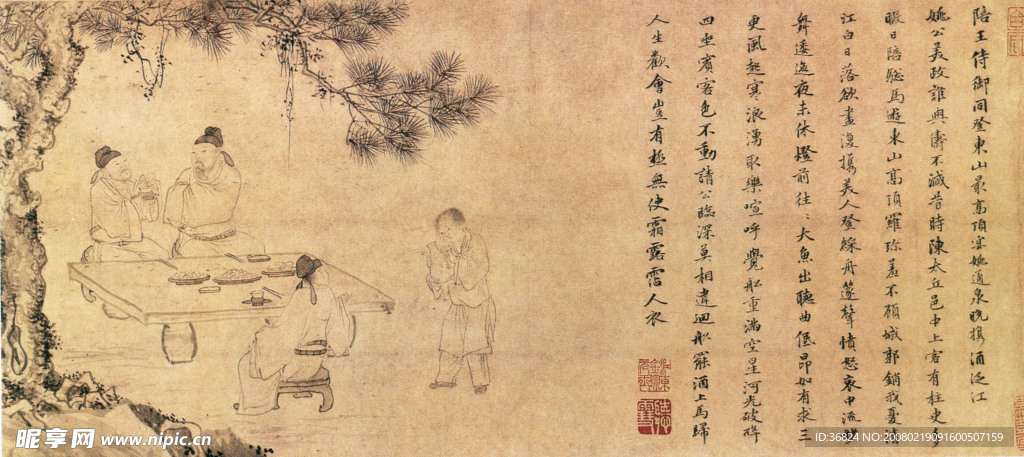 陪王侍御同登東山最高頂宴姚通泉晚携酒泛江
姚公美政誰與儔不減昔時陳太丘邑中上客有柱史多
暇日陪驄馬遊東山高頂羅珍羞不顧城郭銷我憂清
江白日落欲盡復携美人登綵舟篴聲憤怒哀中流妙
舞逶迤夜未休燈前往〻大魚出聽曲低昂如有求三
更風起寒浪湧取樂喧呼覺船重滿空星河光破碎
四坐賓客色不動請公臨深莫相違迴船罷酒上馬歸
人生歡會豈有極無使霜露霑人衣
昵享网 www.nipic.cn
ID:36824 NO:20080219091600507159